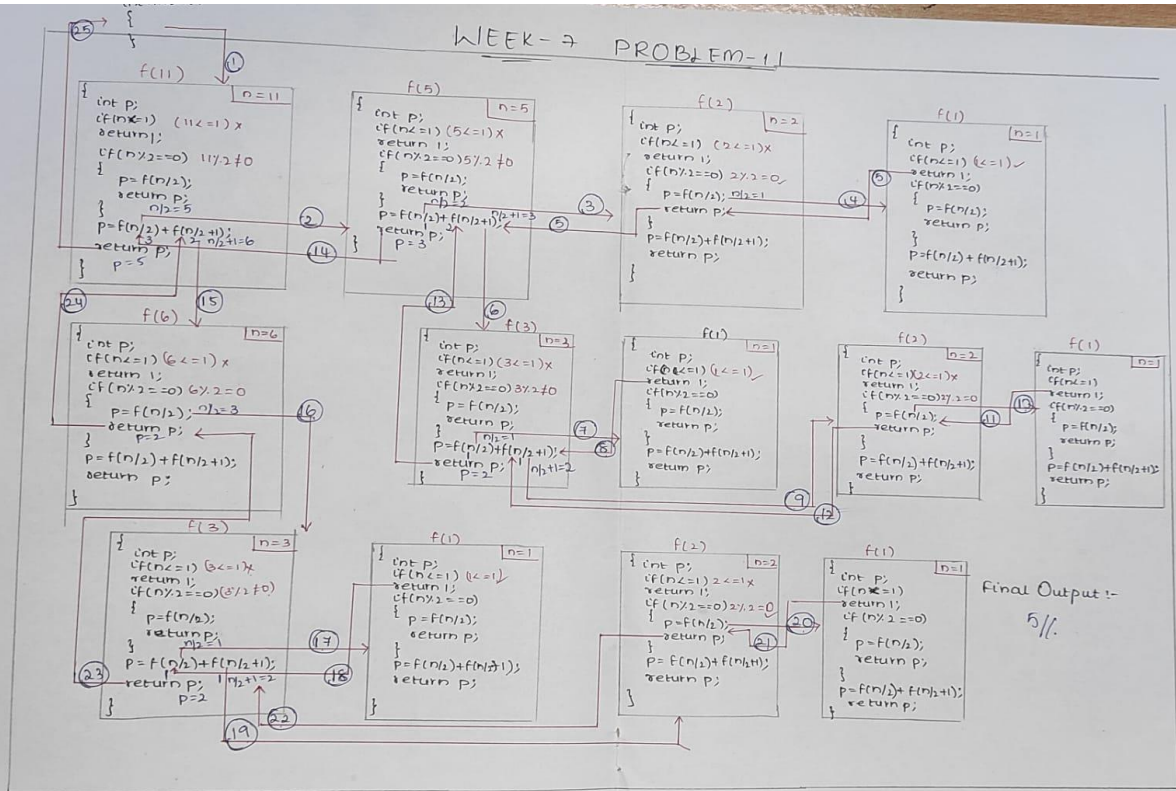 WEEK-7 PROBLEM-11
25
{
}
1
f(11)
n=11
{
int p;
if(n<=1) (11<=1)x
return 1;
if(n%2==0) 11%2≠0
{
p=f(n/2);
return p;
n/2=5
}
p=f(n/2)+f(n/2+1);
3 2 n/2+1=6
return p;
p=5
}
2
14
24
15
f(5)
n=5
{
int p;
if(n<=1) (5<=1)x
return 1;
if(n%2==0) 5%2≠0
{
p=f(n/2);
return p;
}
p=f(n/2)+f(n/2+1); n/2+1=3
return p;
p=3
}
3
5
13
6
f(2)
n=2
{
int p;
if(n<=1) (2<=1)x
return 1;
if(n%2==0) 2%2=0✓
{
p=f(n/2); n/2=1
return p;
}
p=f(n/2)+f(n/2+1);
return p;
}
4
5
f(1)
n=1
{
int p;
if(n<=1) (1<=1)✓
return 1;
if(n%2==0)
{
p=f(n/2);
return p;
}
p=f(n/2)+f(n/2+1);
return p;
}
f(6)
n=6
{
int p;
if(n<=1) (6<=1)x
return 1;
if(n%2==0) 6%2=0
{
p=f(n/2); n/2=3
return p;
p=2
}
p=f(n/2)+f(n/2+1);
return p;
}
16
f(3)
n=3
{
int p;
if(n<=1) (3<=1)x
return 1;
if(n%2==0) 3%2≠0
{
p=f(n/2);
return p;
n/2=1
}
p=f(n/2)+f(n/2+1);
1 1 n/2+1=2
return p;
p=2
}
7
8
9
12
f(1)
n=1
{
int p;
if(n<=1) (1<=1)✓
return 1;
if(n%2==0)
{
p=f(n/2);
return p;
}
p=f(n/2)+f(n/2+1);
return p;
}
f(2)
n=2
{
int p;
if(n<=1)(2<=1)x
return 1;
if(n%2==0)2%2=0
{
p=f(n/2);
return p;
}
p=f(n/2)+f(n/2+1);
return p;
}
11
10
f(1)
n=1
{
int p;
if(n<=1)
return 1;
if(n%2==0)
{
p=f(n/2);
return p;
}
p=f(n/2)+f(n/2+1);
return p;
}
f(3)
n=3
{
int p;
if(n<=1) (3<=1)x
return 1;
if(n%2==0)(3%2≠0)
{
p=f(n/2);
return p;
n/2=1
}
p=f(n/2)+f(n/2+1);
1 1 n/2+1=2
return p;
p=2
}
23
17
18
19
22
f(1)
n=1
{
int p;
if(n<=1) (1<=1)✓
return 1;
if(n%2==0)
{
p=f(n/2);
return p;
}
p=f(n/2)+f(n/2+1);
return p;
}
f(2)
n=2
{
int p;
if(n<=1) 2<=1x
return 1;
if(n%2==0) 2%2=0✓
{
p=f(n/2);
return p;
}
p=f(n/2)+f(n/2+1);
return p;
}
20
21
f(1)
n=1
{
int p;
if(n<=1)
return 1;
if(n%2==0)
{
p=f(n/2);
return p;
}
p=f(n/2)+f(n/2+1);
return p;
}
Final Output :-
5//.